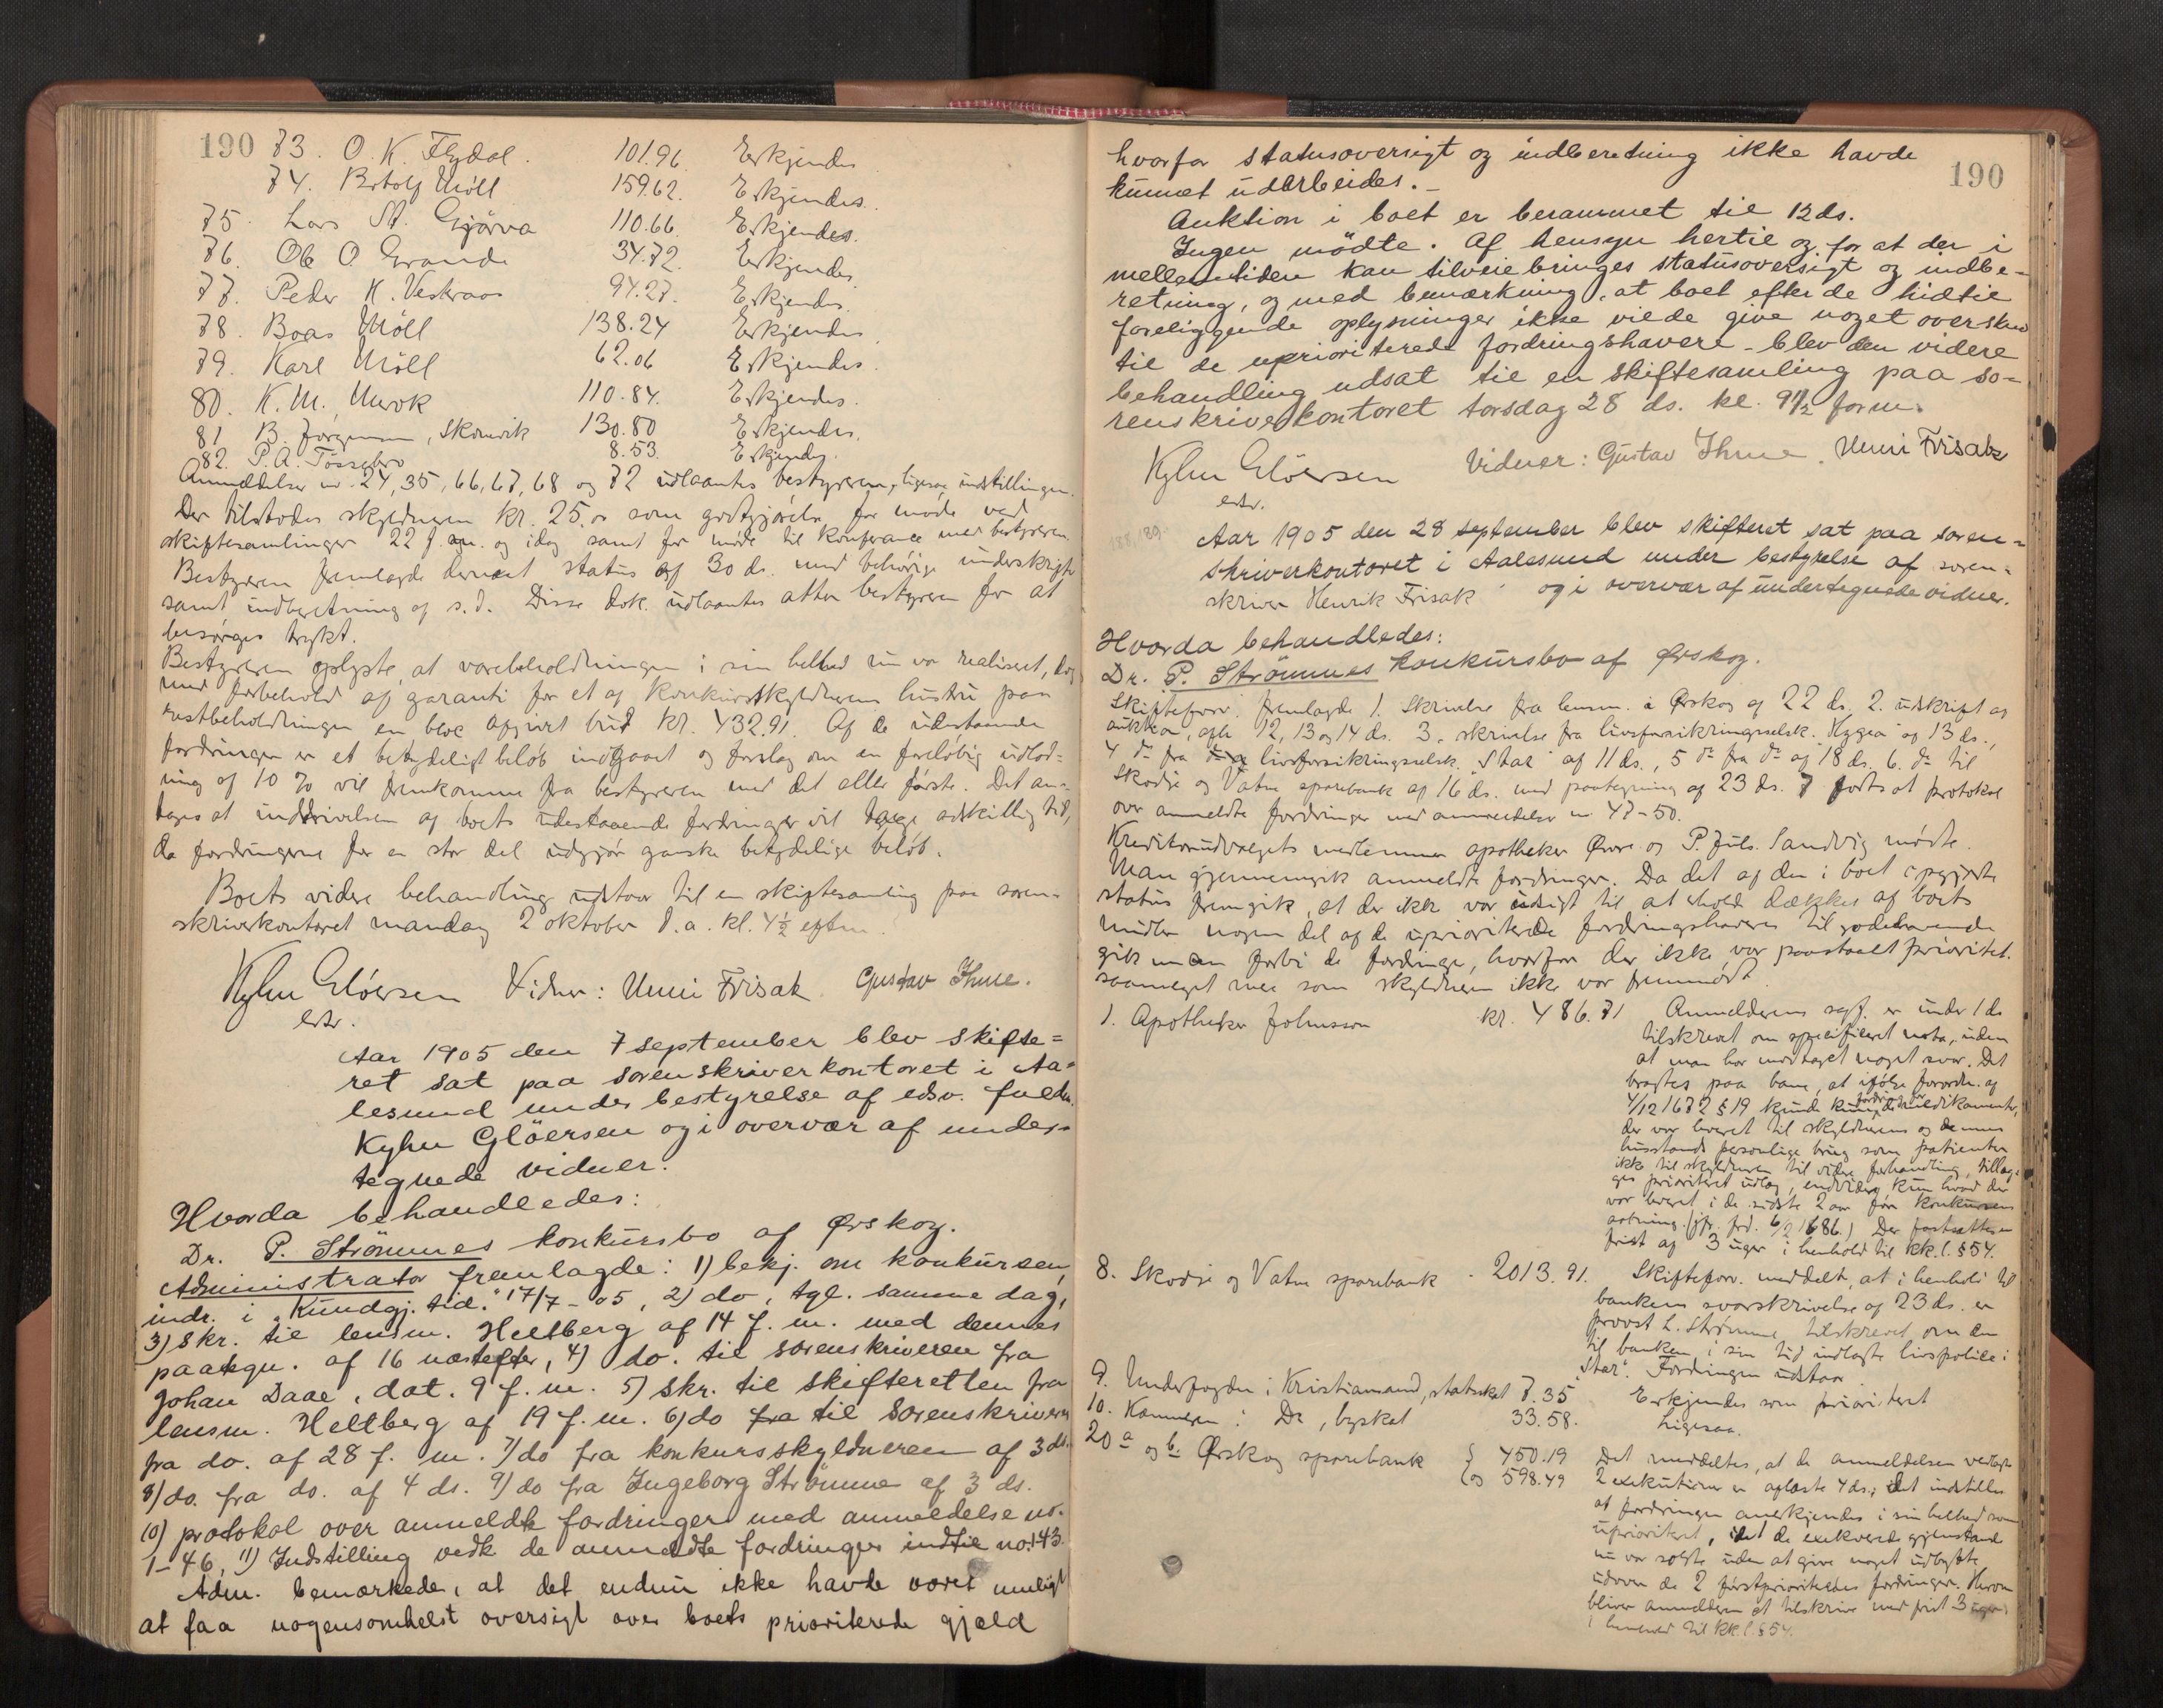 190
73. O. K. Flydal. 101.96 Erkjendes
74. Botolf Möll 159.62. Erkjendes.
75. Lars St. Gjörva 110.66. Erkjendes.
76. Ole O. Grande 34.72. Erkjendes
77. Peder K. Vestraas 94.27. Erkjendes.
78. Boas Möll 138.24 Erkjendes.
79. Karl Möll 62.06 Erkjendes.
80. K. M. Murok 110.84. Erkjendes.
81 B. Jorgensen, 130.80 Erkjendes.
82. P. A. Tössebro 8.53. Erkjendes.
Anmeldelse nr. 24, 35, 66, 67, 68 og 72 udlaantes bestyreren, ligesaa indstillingen.
Der tilstodes skyldneren kr. 25.00 som godtgjörelse for möde ved
skiftesamlinger 22 f. m. og idag samt for möde til konferance med bestyreren.
Bestyreren fremlagde dernæst status af 30 ds. med behörige underskrifter
samt indberetning af s. d. Disse dok. udlaantes atter bestyreren for at
besörges trykt.
Bestyreren oplyste, at varebeholdningen i sin helhed nu var realiseret, dog
med forbehold af garanti for et af konkursskyldnerens hustru paa
restbeholdningen en bloc afgivet bud kr. 432.91. Af de udestaaende
fordringer er et betydeligt belöb indgaaet og forslag om en forelöbig udlod-
ning af 10 % vil fremkomme fra bestyreren med det aller förste. Det an-
tages at inddrivelsen af boets udestaaende fordringer vil tage adskillig tid,
da fordringerne for en stor del udgjör ganske betydelige belöb.
Boets videre behandling udstaar til en skiftesamling paa soren-
skriverkontoret mandag 2 oktober d. a. kl. 4½ efterm.
Kyhn Glöersen Vidner: Unni Frisak. Gustav Ihme.
edsv.
Aar 1905 den 7 september blev skifte=
ret sat paa sorenskriverkontoret i Aa=
lesund under bestyrelse af edsv. fuldm.
Kyhn Glöersen og i overvær af under-
tegnede vidner.
Hvorda behandledes:
Dr. P. Strömmes konkursbo af Ørskog.
Administrator fremlagde: 1) bekj. om konkursen,
indr. i "Kundgj. tid." 17/7 - 05, 2) do, tgl. samme dag,
3) skr. til lensm. Heltberg af 14 f. m. med dennes
paategn. af 16 næstefter, 4) do. til sorenskriveren fra
Johan Daae, dat. 9 f. m. 5) skr. til skifteretten fra
lensm. Heltberg af 19 f. m. 6) do fra til sorenskriveren
fra do. af 28 f. m. 7) do fra konkursskyldneren af 3 ds.
8) do. fra do. af 4 ds. 9) do fra Ingeborg Strömme af 3 ds.
10) protokol over anmeldte fordringer med anmeldelse no.
1-46, 11) Indstilling vedk de anmeldte fordringer indtil no. 143.
Adm. bemærkede, at det endnu ikke havde været muligt
at faa nogensomhelst oversigt over boets prioriterede gjæld
190
hvorfor statusoversigt og indberetning ikke havde
kunnet udarbeides.-
Auktion i boet er berammet til 12 ds.
Ingen mödte. Af hensyn hertil og for at der i
mellemtiden kan tilveiebringes statusoversigt og indbe-
retning, og med bemærkning, at boet efter de hidtil
foreliggende oplysninger ikke vilde give noget overskud
til de uprioriterede fordringshavere - blev den videre
behandling udsat til en skiftesamling paa so-
renskriverkontoret torsdag 28 ds. kl. 9½ form.
Kyhn Glöersen Vidner: Gustav Ihme. Unni Frisak
edsv.
188. 189.
Aar 1905 den 28 september blev skifteret sat paa soren=
skriverkontoret i Aalesund under bestyrelse af soren=
skriver Henrik Frisak og i overvær af undertegnede vidner.
Hvorda behandledes:
Dr. P. Strömmes konkursbo af Ørskog.
Skifteforv. fremlagde 1. Skrivelse fra lensm. i Ørskog af 22 ds. 2. udskrift af
auktion, afh. 12, 13 og 14 ds. 3. skrivelse fra livsforsikringsselsk. Hygea af 13 ds.,
4 do fra livsforsikringsselsk. "Star" af 11 ds., 5 do fra do af 18 ds. 6. do til
Skodje og Vatne sparebank af 16 ds. med paategning af 23 ds. 7 forts. af protokol
over anmeldte fordringer med anmeldelse nr. 47-50.
Kreditorudvalgets medlemmer apotheker Øwre og P. Juls. Sandvig mödte.
Man gjennemgik anmeldte fordringer. Da det af den i boet opgjorte
status fremgik, at der ikke var udsigt til at erholde dækket af boets
midler nogen del af de uprioriterede fordringshaveres tilgodehavende
gik man forbi de fordringer, hvorfor der ikke var paastaaet prioritet.
saameget mer som skyldneren ikke var fremmödt.
1. Apotheker Johnsson kr. 486.71 Anmelderens sagf. er under 1 ds
tilskrevet om specificeret nota, uden
at man har modtaget noget svar. Det
bragtes paa bane, at ifölge forordn. af
4/12 1672 § 19 kunde kun fordring for medikamenter,
der var leveret til skyldnerens og dennes
husstands personlige brug som patienter
ikke til skyldneren til videre forhandling, tillæg-
ges prioriteret udlæg, endvidere kun hvad der
var leveret i de sidste 2 aar för konkursens
aabning. (jfr. frd. 6/2 1686.) Der fastsættes en
frist af 3 uger i henhold til kk. l. § 54.
8. Skodje og Vatne sparebank - 2013.91. Skifteforv. meddelte, at i henhold til
bankens svarskrivelse af 23 ds. er
provst L. Strömme tilskrevet om den
til banken i sin tid indlagte livspolice i
"Star". Fordringen udstaar.
9. Underfogden i Kristiansand, statsskat 7.35 Erkjendes som prioriteret
10. Kæmneren i Do, byskat 33.58. Ligesaa.
20 a og b. Ørskog sparebank { 450.19 Det meddeltes, at de anmeldelsen vedlagte
{ og 598.49 2 exekutioner er aflæste 4 ds.; det indstilles
at fordringen anerkjendes i sin helhed som
uprioriteret, idet de exekverede gjenstande
nu var solgte uden at give noget udbytte
udover de 2 förstprioriterede fordringer. Herom
bliver anmelderen at tilskrive med frist 3 uger
i henhold til kk. l. § 54.